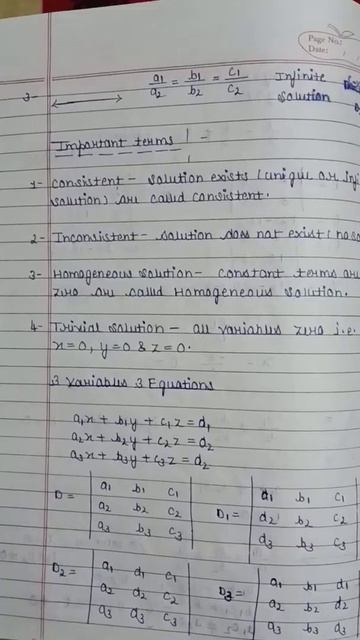 Page No.:
Date:
3- a1/a2 = b1/b2 = c1/c2 Infinite
solution
Important terms ! -
1- consistent - solution exists (unique or inf
solution) are called consistent.
2- Inconsistent - solution does not exist (no so
3- Homogeneous solution - constant terms are
zero are called Homogeneous solution.
4- Trivial solution - all variables zero i.e.
x=0, y=0 & z=0.
3 Variables 3 Equations
a1x + b1y + c1z = d1
a2x + b2y + c2z = d2
a3x + b3y + c3z = d2
D = | a1 b1 c1 | D1 = | d1 b1 c1
| a2 b2 c2 | | d2 b2 c2
| a3 b3 c3 | | d3 b3 c3
D2 = | a1 d1 c1 | D3 = | a1 b1 d1
| a2 d2 c2 | | a2 b2 d2
| a3 d3 c3 | | a3 b3 d3